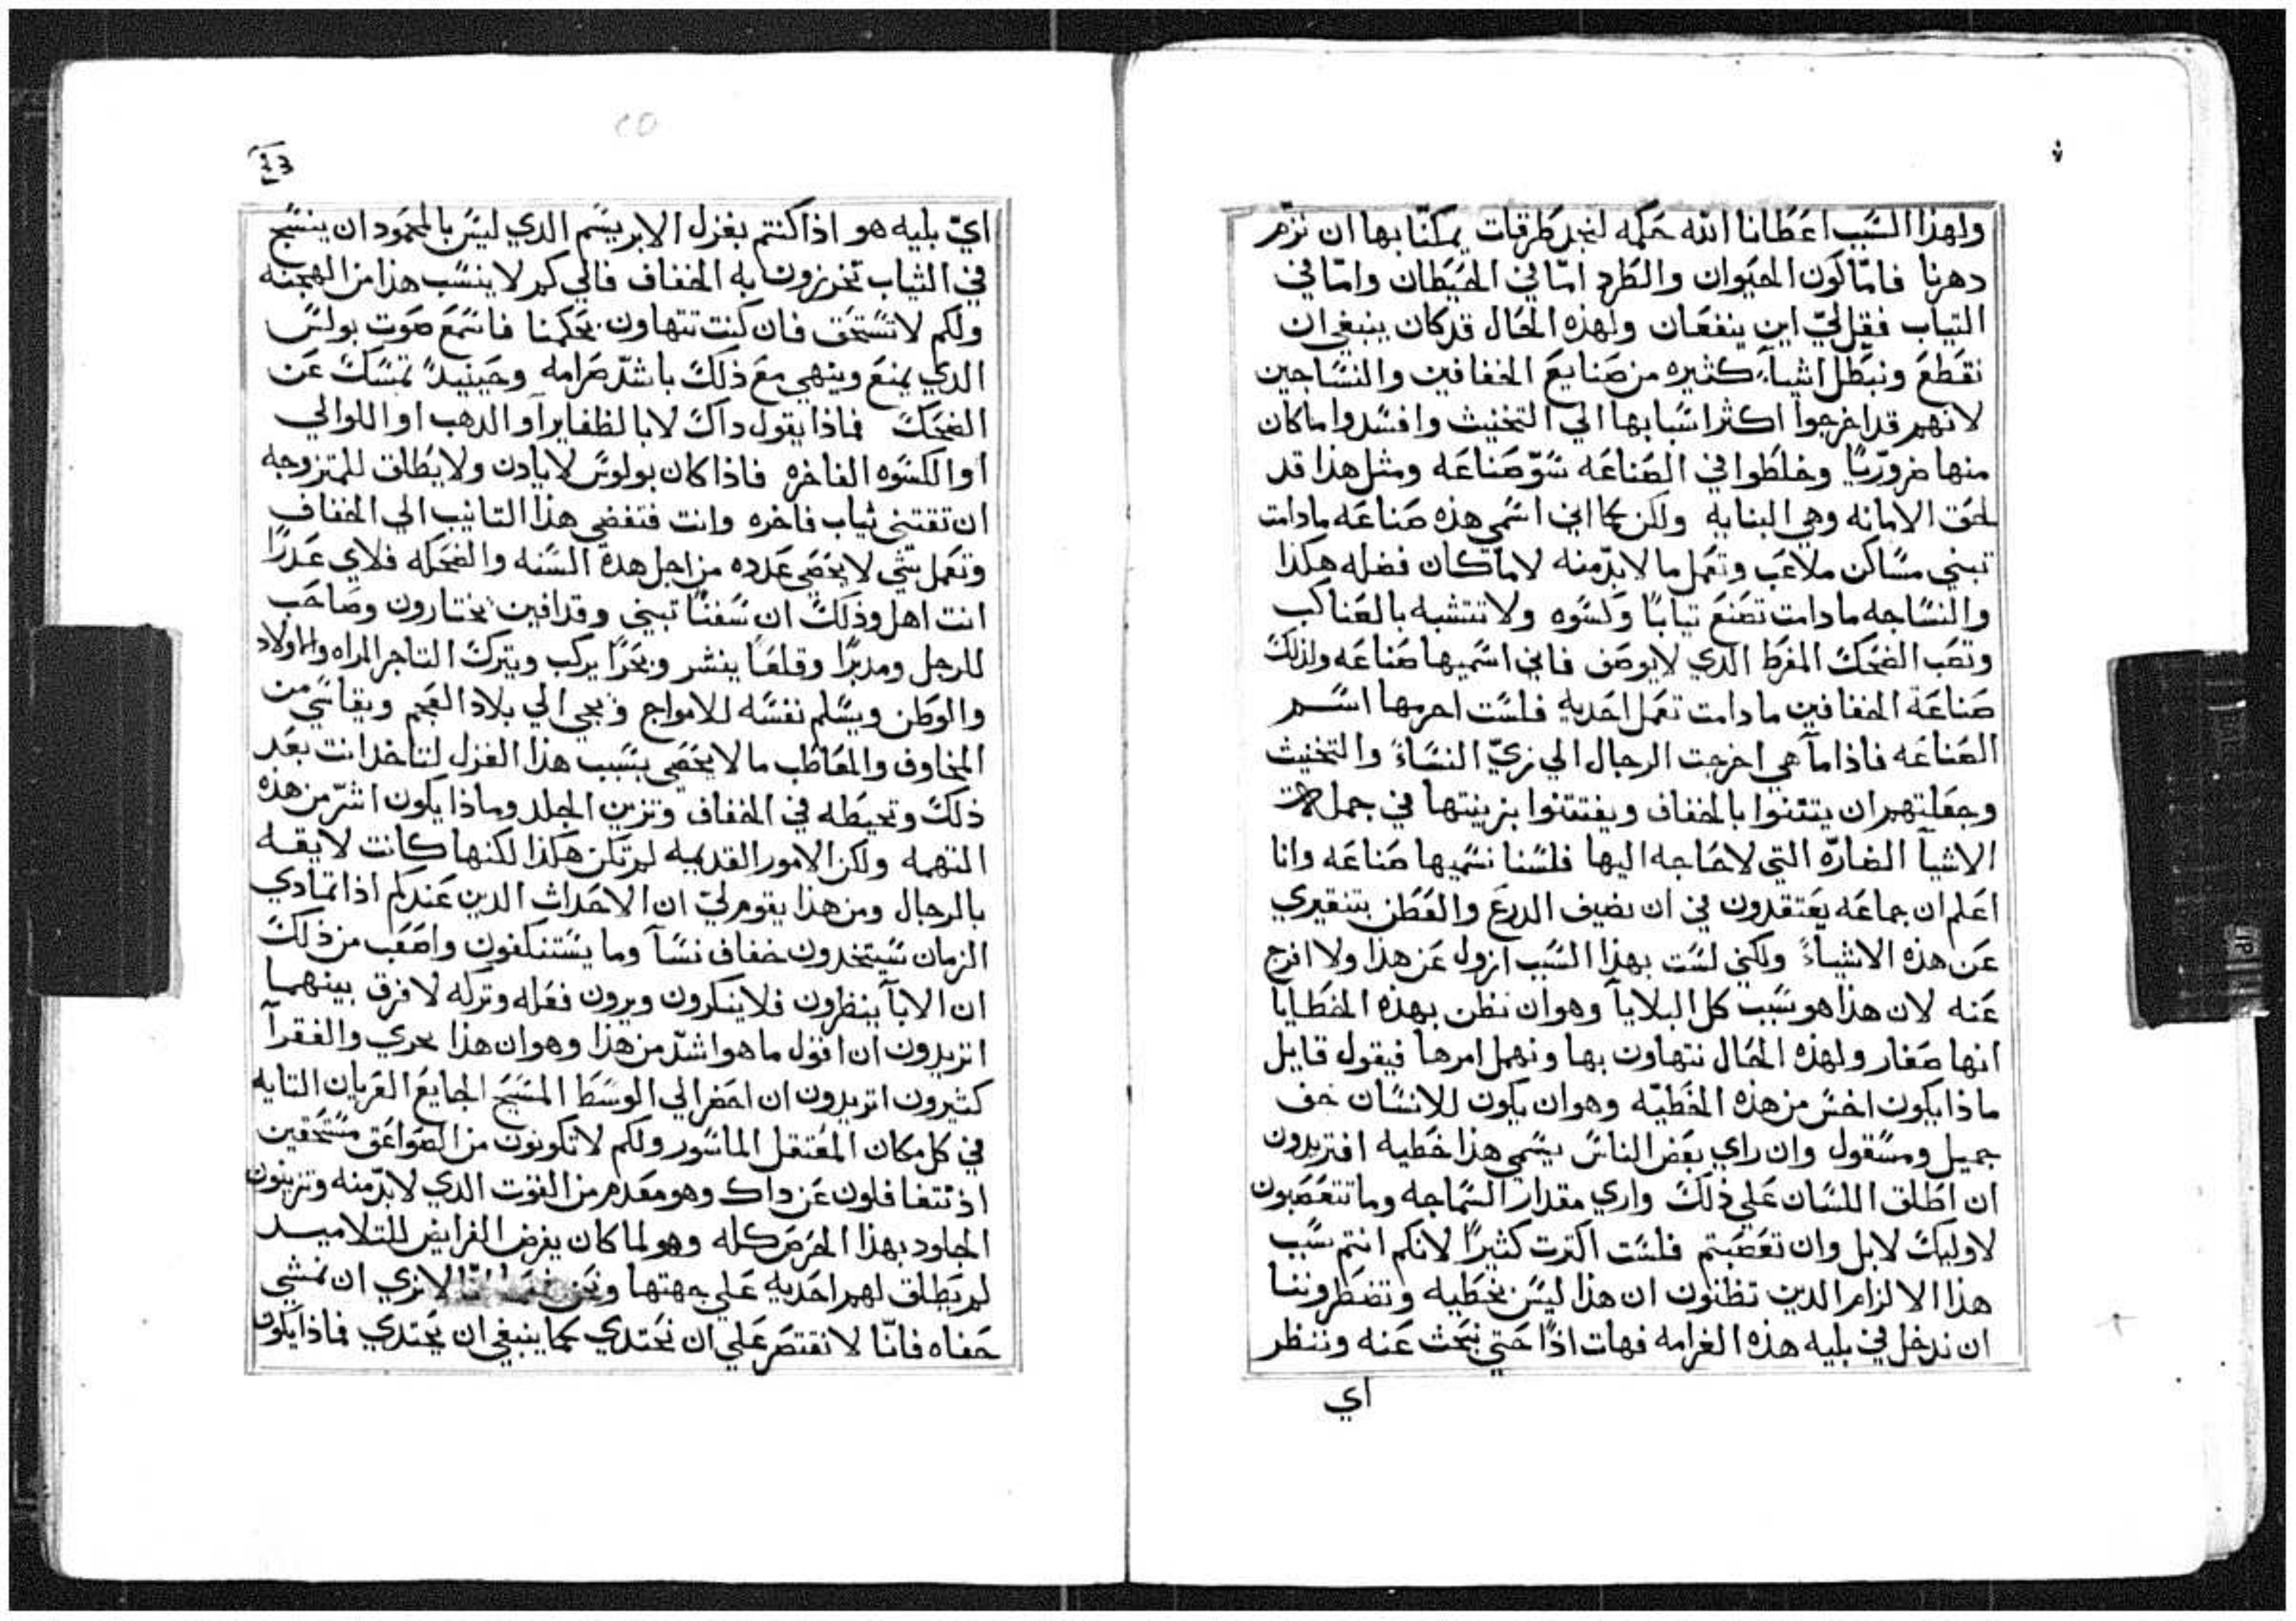 ولهذا السبب اعطانا الله حكمه لنجد طرقات يمكنّا بها ان نزّم
دهرنا فامّا كون الحيوان والطرد امّا في الحيطان وامّا في
التياب فقل ليّ اين ينفعان ولهذه الحال قد كان ينبغي ان
نقطع ونبطل اشياء كثيره من صنايع الخفافين والنساجين
لانهم قد اخرجوا اكثر اسبابها الي التخنيث وافسدوا ما كان
منها ضروريّا وخلطوا في الصناعه سوّ صناعه ومثل هذا قد
لحق الامانه وهي البنايه ولكن كما اني اسمي هذه صناعه مادامت
تبني مساكن ملاعب وتعمل ما لابدّ منه لا ما كان فضله هكذا
والنساجه مادامت تصنع تيابًا وكسوه ولا تتشبه بالعناكب
وتصب الضحك المفرط الدي لا يوصف فاني اسميها صناعه ولذلك
صناعة الخفافين مادامت تعمل احديه فلست احرمها اسم
الصناعه فاذا ما هي اخرجت الرجال الي زيّ النساء والتخنيث
وجعلتهم ان يتثنوا بالخفاف ويفتتنوا بزينتها في جملة
الاشيآ الضارّه التي لاحاجه اليها فلسنا نسميها صناعه وانا
اعلم ان جماعه يعتقدون في ان نضيف الدرع والقطن بتنقيري
عن هذه الاشياء ولكني لست بهذا السبب ازول عن هذا ولا افرج
عنه لان هذا هو سبب كل البلايا وهو ان نظن بهذه الخطايا
انها صغار ولهذه الحال نتهاون بها ونهمل امرها فيقول قايل
ماذا يكون اخس من هذه الخطيّه وهو ان يكون للانسان خف
جميل ومسقول وان راي بعض الناس يسمي هذا خطيه افتريدون
ان اطلق اللسان علي ذلك واري مقدار السماجه وما تتعصبون
لاوليك لا بل وان تعصبتم فلست اكترت كثيرًا لانكم انتم سبب
هذا الالزام الدين تظنون ان هذا ليس بخطيه وتضطروننا
ان ندخل في بليه هذه الغرامه فهات اذًا حتي نبحث عنه وننظر
اي
ايّ بليه هو اذا كنتم بغزل الابريسم الدي ليس بالمحمود ان ينسج
في الثياب تخرزون به الخفاف فالي كم لا ينسب هذا من الهجنه
ولكم لا تستحق فان كنت تتهاون بحكمنا فاسمع صوت بولس
الدي يمنع وينهي مع ذلك باشدّ صرامه وحينيدً تمسك عن
الضحك فماذا يقول داك لا بالظفاير او الدهب او اللوالي
او الكسوه الفاخره فاذا كان بولوس لا يادن ولا يطلق للمتزوجه
ان تقتني ثياب فاخره وانت فتفضي هذا التانيب الي الخفاف
وتعمل شي لا يحصي عدده من اجل هده السنه والضحكه فلاي عدرًا
انت اهل وذلك ان سفنًا تبني وقدافين يختارون وصاحب
للرجل ومدبرًا وقلعًا ينشر وبحرًا يركب ويترك التاجر المراه والاولاد
والوطن ويسلم نفسه للامواج ويجي الي بلاد العجم ويقاسي من
المخاوف والمعاطب ما لا يحصي بسبب هذا الغزل لتاخد انت بعد
ذلك وتحيطه في الخفاف وتزين الجلد وماذا يكون اشرّ من هذه
التهمه ولكن الامور القديمه لم تكن هكذا لكنها كانت لايقه
بالرجال ومن هذا يقوم ليّ ان الاحداث الدين عندكم اذا تمادي
الزمان سيتخدون خفاف نسآ وما يستنكفون واصعب من ذلك
ان الابآ ينظرون فلا ينكرون ويرون فعله وتركه لا فرق بينهما
اتريدون ان اقول ما هو اشدّ من هذا وهو ان هذا يجري والفقرآ
كثيرون اتريدون ان احضر الي الوسط المسيح الجايع العريان التايه
في كل مكان المعتقل الماسور ولكم لا تكونون من الصواعق مستحقين
اذ تتغافلون عن داك وهو معدم من القوت الدي لابدّ منه وتزينون
الجلود بهذا الحرص كله وهو لما كان يفرض الفرايض للتلاميد
لم يطلق لهم احديه علي جهتها ونحن لا نري ان نمشي
حفاه فانّا لا نقتصر علي ان نحتدي كما ينبغي ان يحتدي فماذا يكون